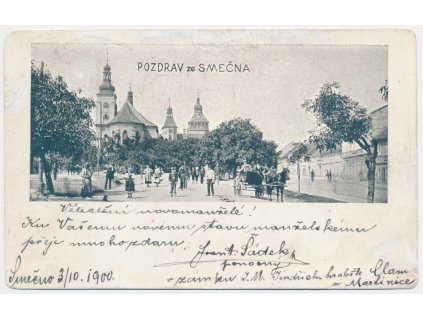 POZDRAV ze SMEČNA
Velectění novomanželé!
Ku Vašemu novému stavu manželskému
přeje mnoho zdaru:
Frant. Šádek
Smečno 3/10. 1900.
v zámku J. M. Jindřicha hraběte Clam
- Martinice